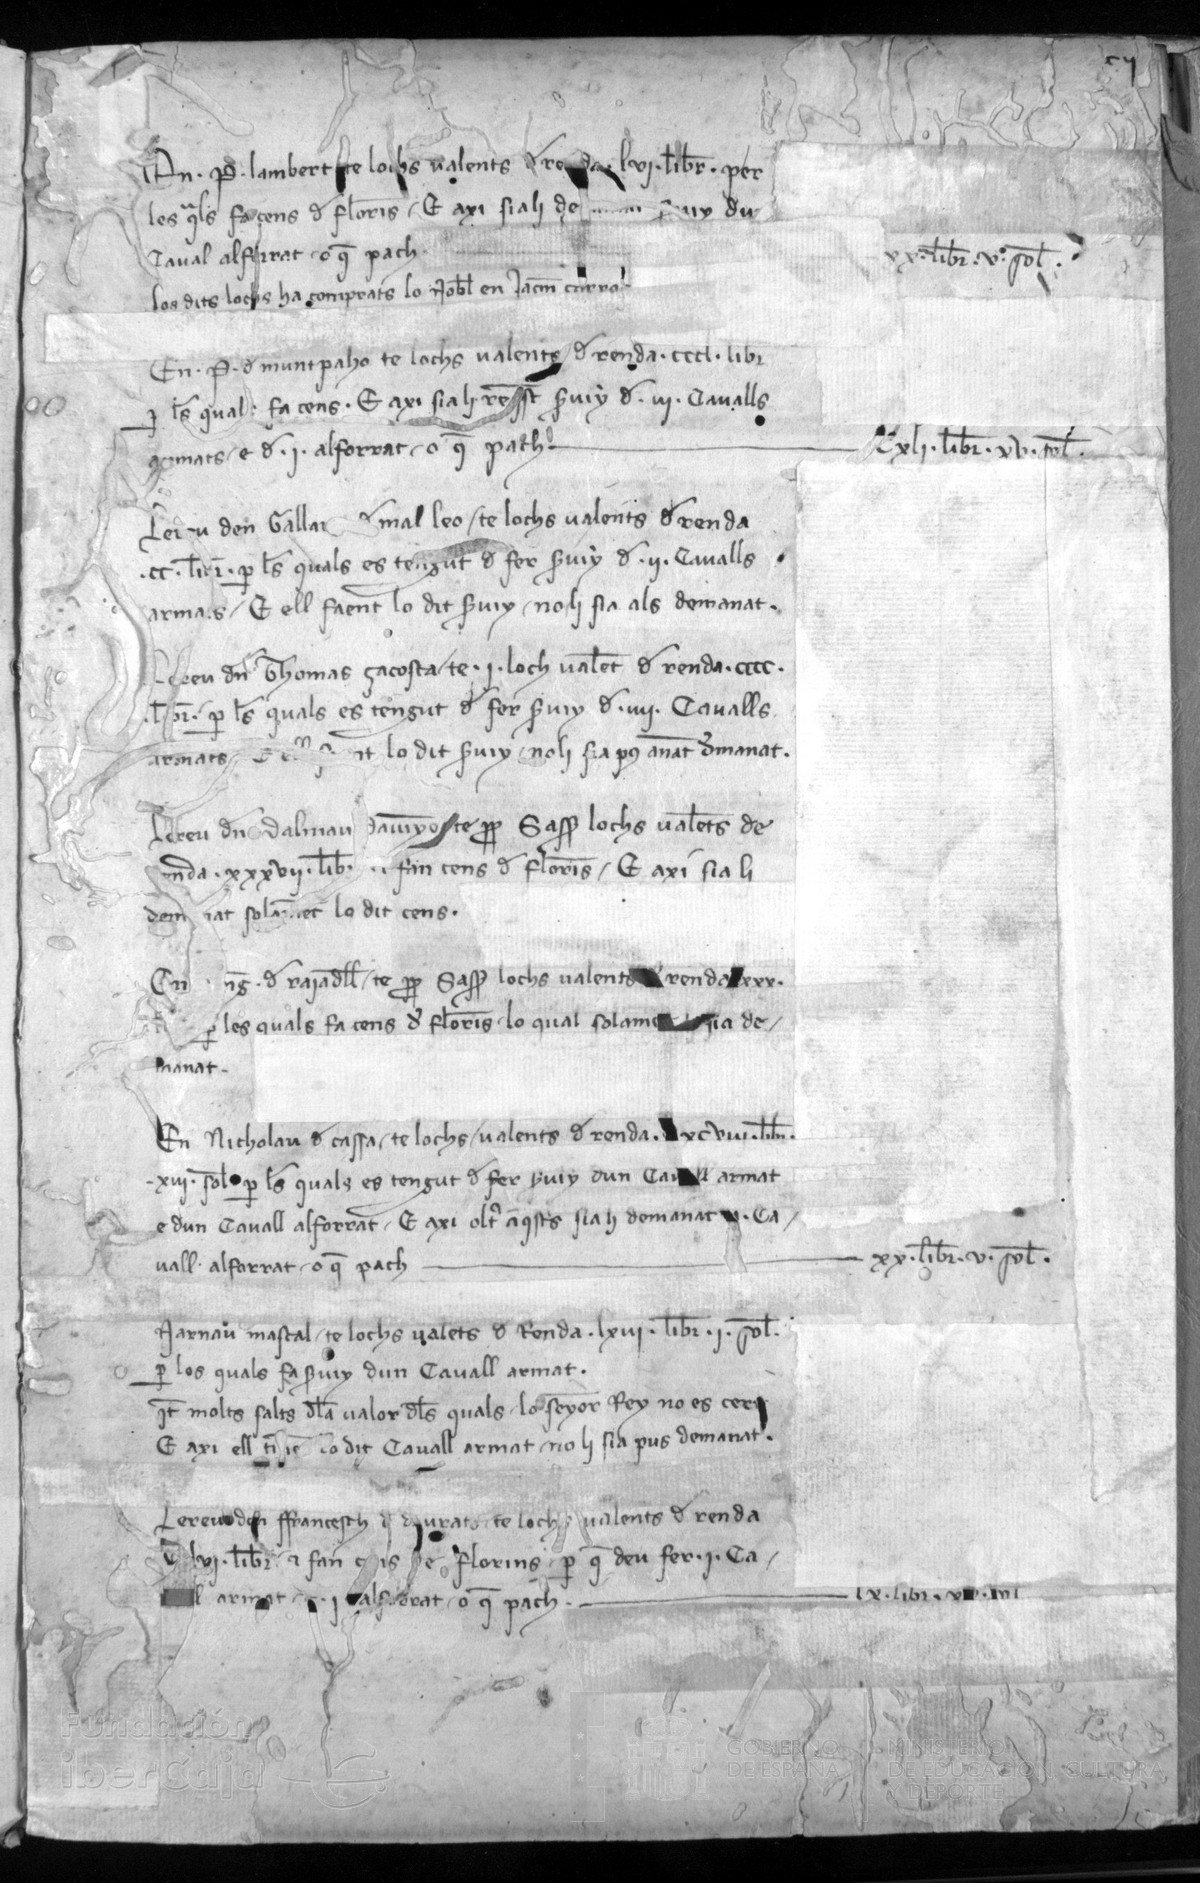 cij
En · P · lambert te lochs valents d renda · lvi · libr · per
les qls fa cens d floris / E axi sia li de servy du
Caval alforrat o q pach · xx · libr · v · sol ·
los dits lochs ha comprats lo Nobl en
En · P · d muntpaho te lochs valents d renda · cccl · libr
p ls quals fa cens · E axi sia li servy d · vi · Cavalls
armats / e d · i · alforrat / o q pach xli · libr · xv · sol ·
Lereu den Gallar d mal leo / te lochs valents d renda
· cc · libr · p ls quals es tengut d fer servy d · ii · Cavalls
armats / E ell faent lo dit servy / no li sia als demanat ·
Lereu dn Thomas çacosta / te · i · loch valet d renda · cccc ·
· libr · p ls quals es tengut d fer servy d · iiii · Cavalls
armats / E ell lo dit servy / no li sia pus anat dmanat ·
Lereu dn dalmau te pp Sassp lochs valets de
renda · xxxvii · libr · fan cens d floris / E axi sia li
demanat solamet lo dit cens ·
En d rajadll / te pp Sassp lochs valents d renda xxx ·
p les quals fa cens d floris / lo qual solamet li sia de /
manat ·
En Nicholau d cassa / te lochs / valents d renda · xcviii · libr ·
· xvi · sol p ls quals es tengut d fer servy dun Cavall armat
e dun Cavall alforrat / E axi oltr aqsts sia li demanat · i · Ca /
vall · alforrat o q pach xx · libr · v · sol ·
Narnau mascal / te lochs valets d Renda · lxvi · libr · i · sol ·
p los quals fa servy dun Cavall armat ·
It molts salts dla valor dls quals / lo senyor Rey no es cert
E axi ell lo dit Cavall armat / no li sia pus demanat ·
Lereu den ffrancesch d te lochs valents d renda
lvi · libr fan cens de florins p q deu fer · i · Ca /
vall armat · i · alforrat / o q pach · lx · libr · xv · sol
Fundación
iberCaja
GOBIERNO
DE ESPAÑA
MINISTERIO
DE EDUCACIÓN, CULTURA
Y DEPORTE